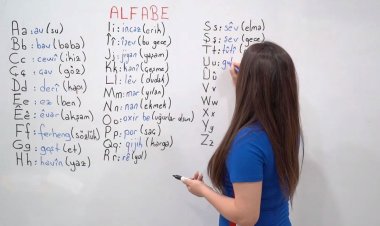 ALFABE
Aa: av (su)
Bb: bav (baba)
Cc: cewî (ikiz)
Çç: çav (göz)
Dd: derî (kapı)
Ee: ez (ben)
Êê: êvar (akşam)
Ff: ferheng (sözlük)
Gg: goşt (et)
Hh: havîn (yaz)
Ii: incaz (erik)
Îî: îşev (bu gece)
Jj: jiyan (yaşam)
Kk: kanî (çeşme)
Ll: lêv (dudak)
Mm: mar (yılan)
Nn: nan (ekmek)
Oo: oxir be (uğurlar olsun)
Pp: por (saç)
Qq: qijik (karga)
Rr: rê (yol)
Ss: sêv (elma)
Şş: şev (gece)
Tt: tûtî
Uu:
Ûû
Vv
Ww
Xx
Yy
Zz